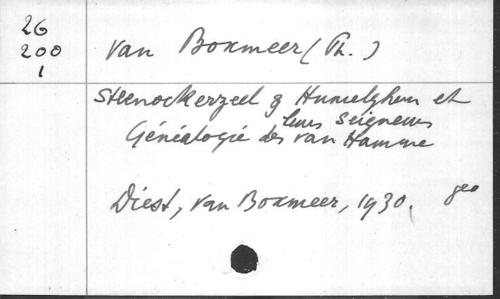 26
200
1
van Boxmeer (Th.)
Steenockerzeel & Humelghem et
leurs Seigneurs
Généalogie des van Hamme
Diest, van Boxmeer, 1930. geo